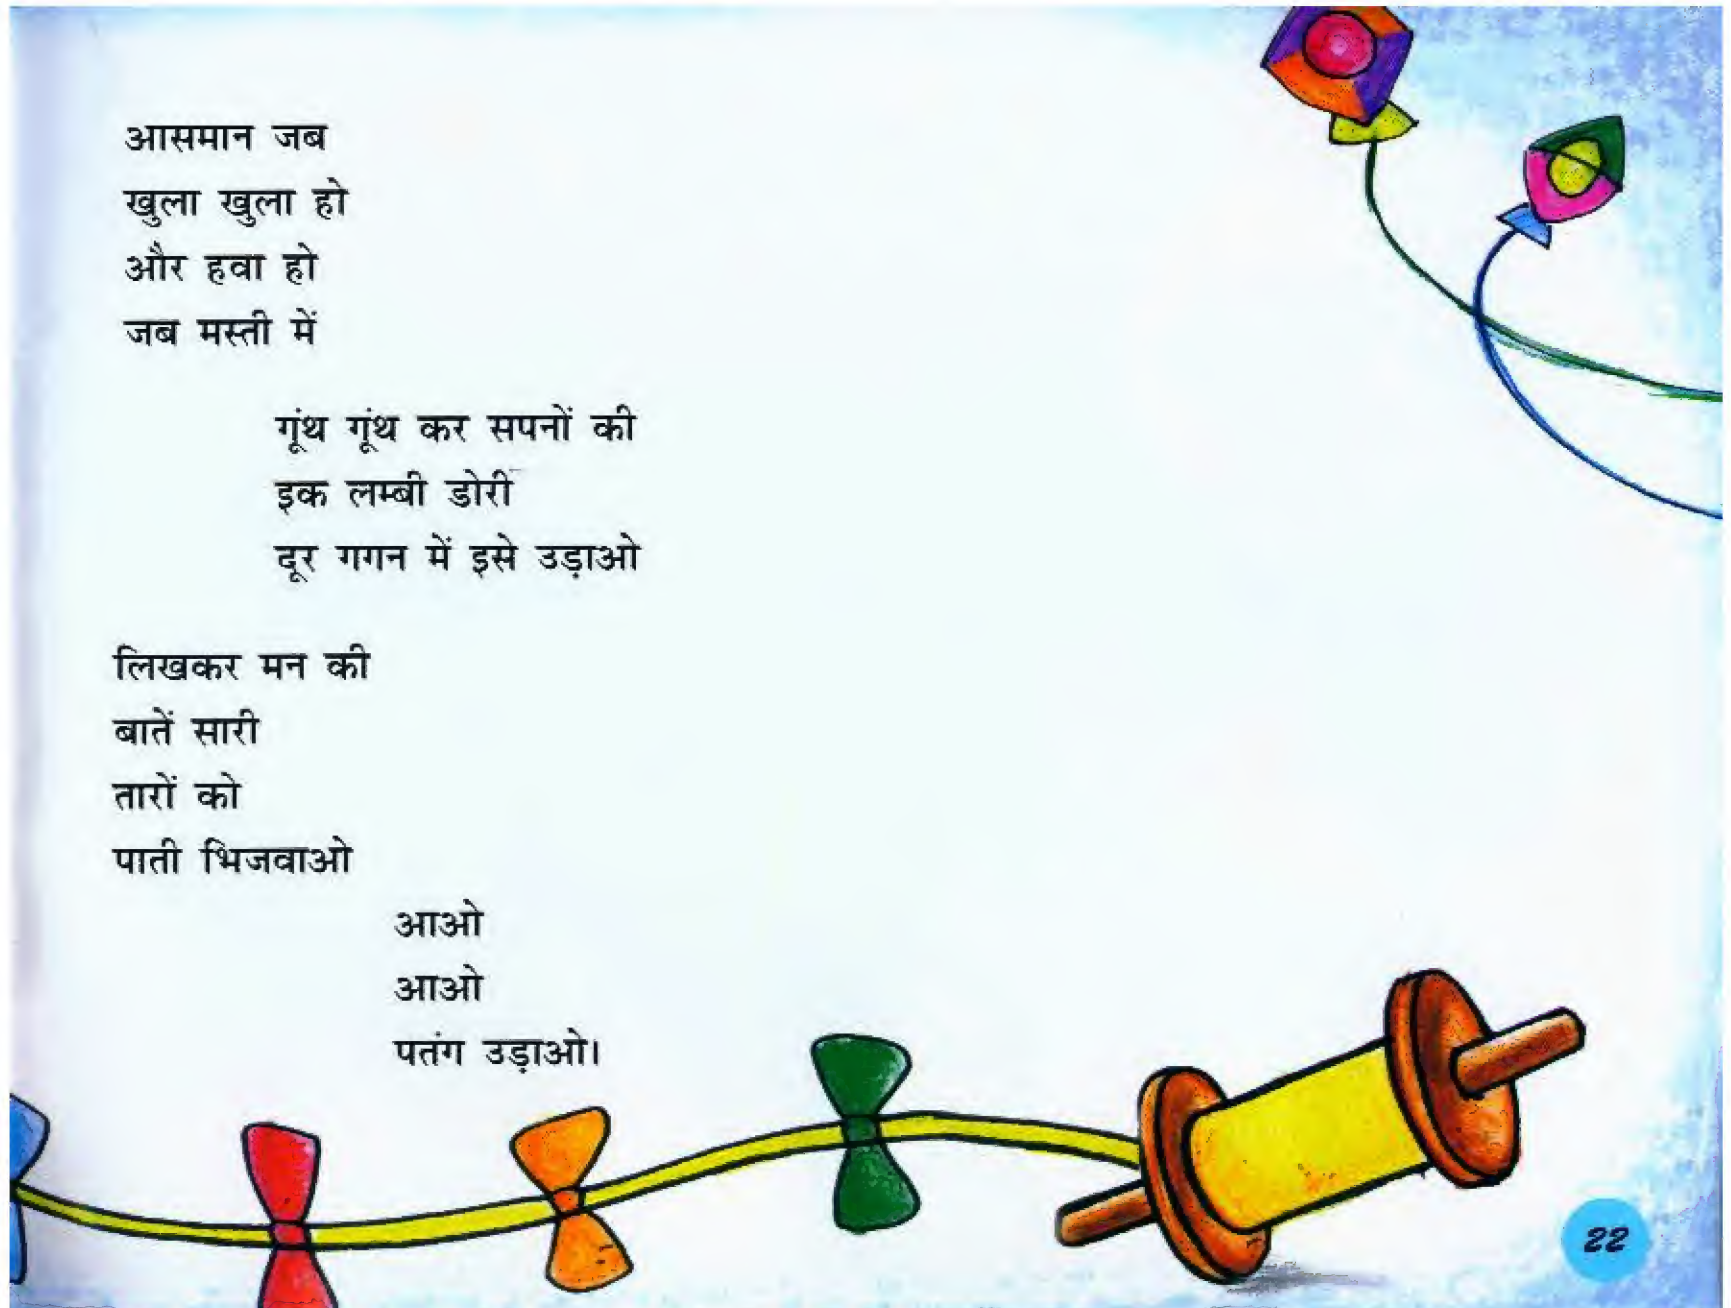 आसमान जब
खुला खुला हो
और हवा हो
जब मस्ती में
गूंथ गूंथ कर सपनों की
इक लम्बी डोरी
दूर गगन में इसे उड़ाओ
लिखकर मन की
बातें सारी
तारों को
पाती भिजवाओ
आओ
आओ
पतंग उड़ाओ।
22